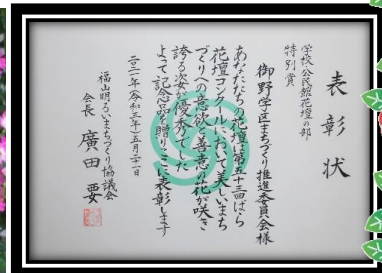 表彰状
学校公民館花壇の部
特別賞
御野学区まちづくり推進委員会様
あなたたちの花壇は第五十三回ばら
花壇コンクールにおいて美しいまち
づくりへの意欲と善意の花が咲き
誇る姿が優秀でした
よって記念品を贈りここに表彰します
二〇二一年(令和三年)五月二十一日
福山明るいまちづくり協議会
会長 廣田要